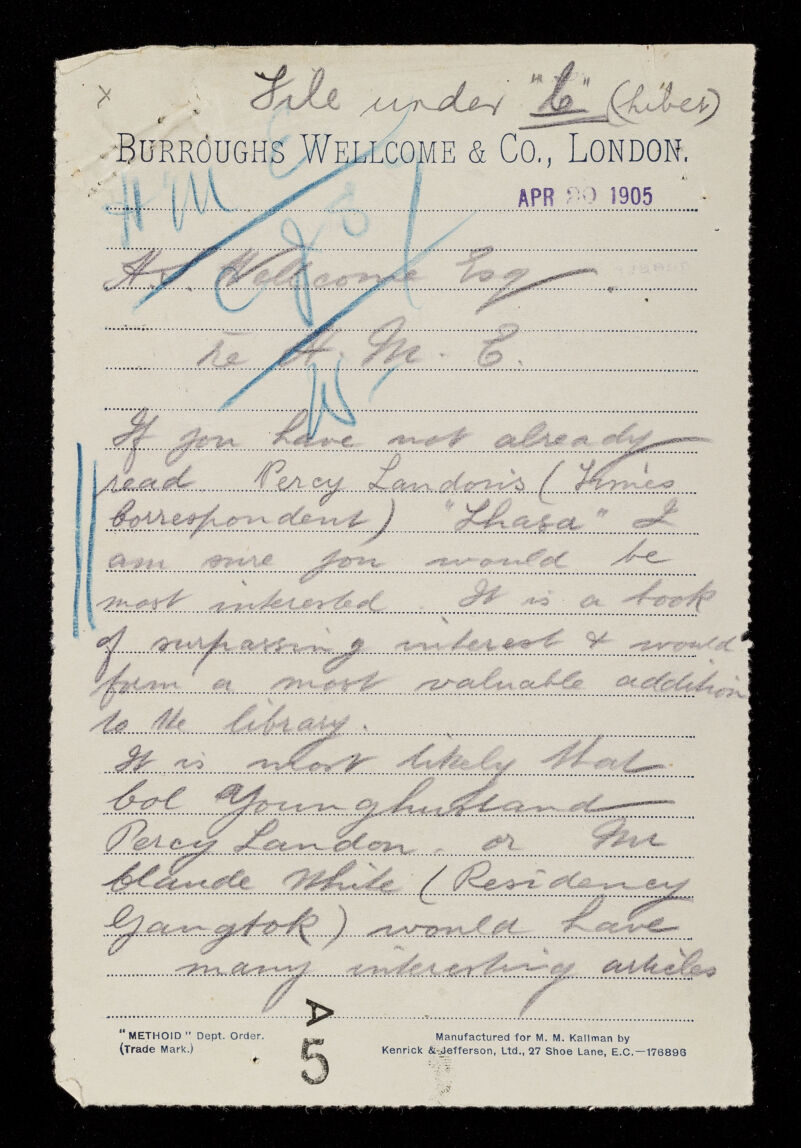 x File under "L" (Tibet)
BURROUGHS WELLCOME & CO., LONDON.
APR 20 1905
H M C
H.S. Wellcome Esq
re H. M. C.
W
If you have not already
read Percy Landon's (Times
Correspondent) "Lhasa" I
am sure you would be
most interested. It is a book
of surpassing interest & would
form a most valuable addition
to the library.
It is most likely that
Col Younghusband
Percy Landon. or Mr
Claude White (Residency
Gangtok) would have
many interesting articles
"METHOID" Dept. Order.
(Trade Mark.)
A
5
Manufactured for M. M. Kallman by
Kenrick & Jefferson, Ltd., 27 Shoe Lane, E.C.—176896